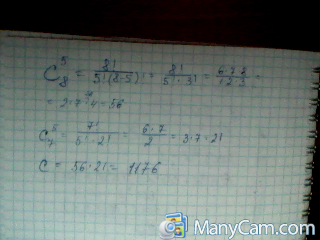 C₈⁵ = 8! / 5!(8-5)! = 8! / 5! · 3! = 6·7·8 / 1·2·3 =
= 2·7·4 = 56
C₇⁵ = 7! / 5! · 2! = 6·7 / 2 = 3·7 = 21
C = 56·21 = 1176
ManyCam.com